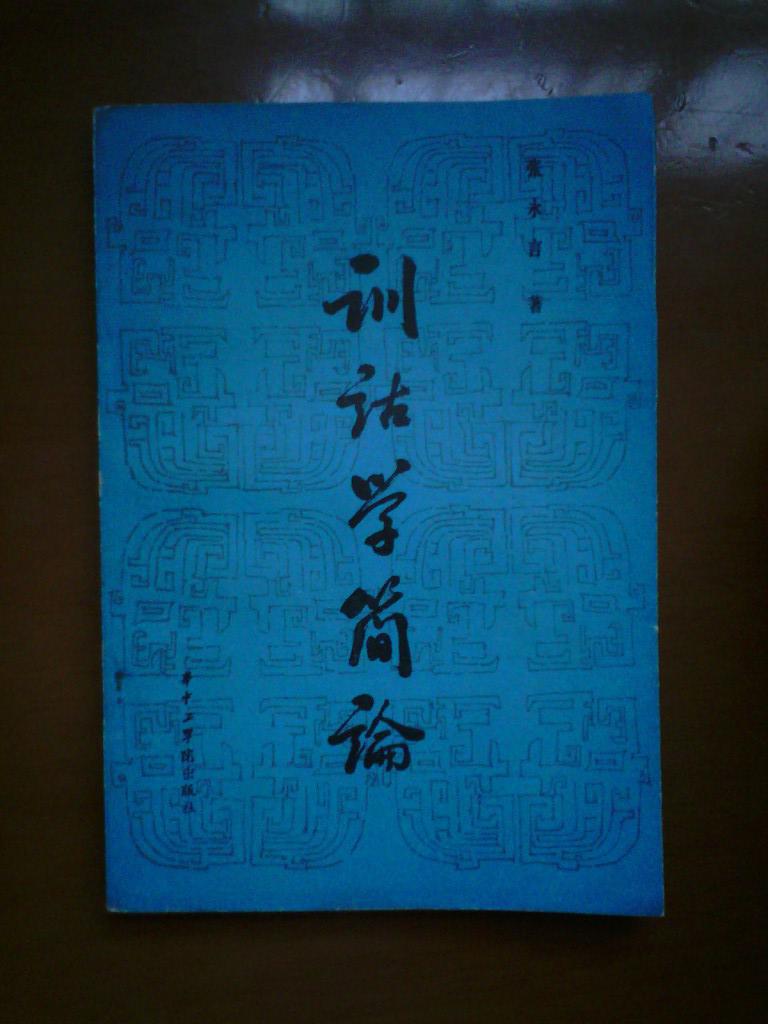 张永言 著
训诂学简論
华中工学院出版社